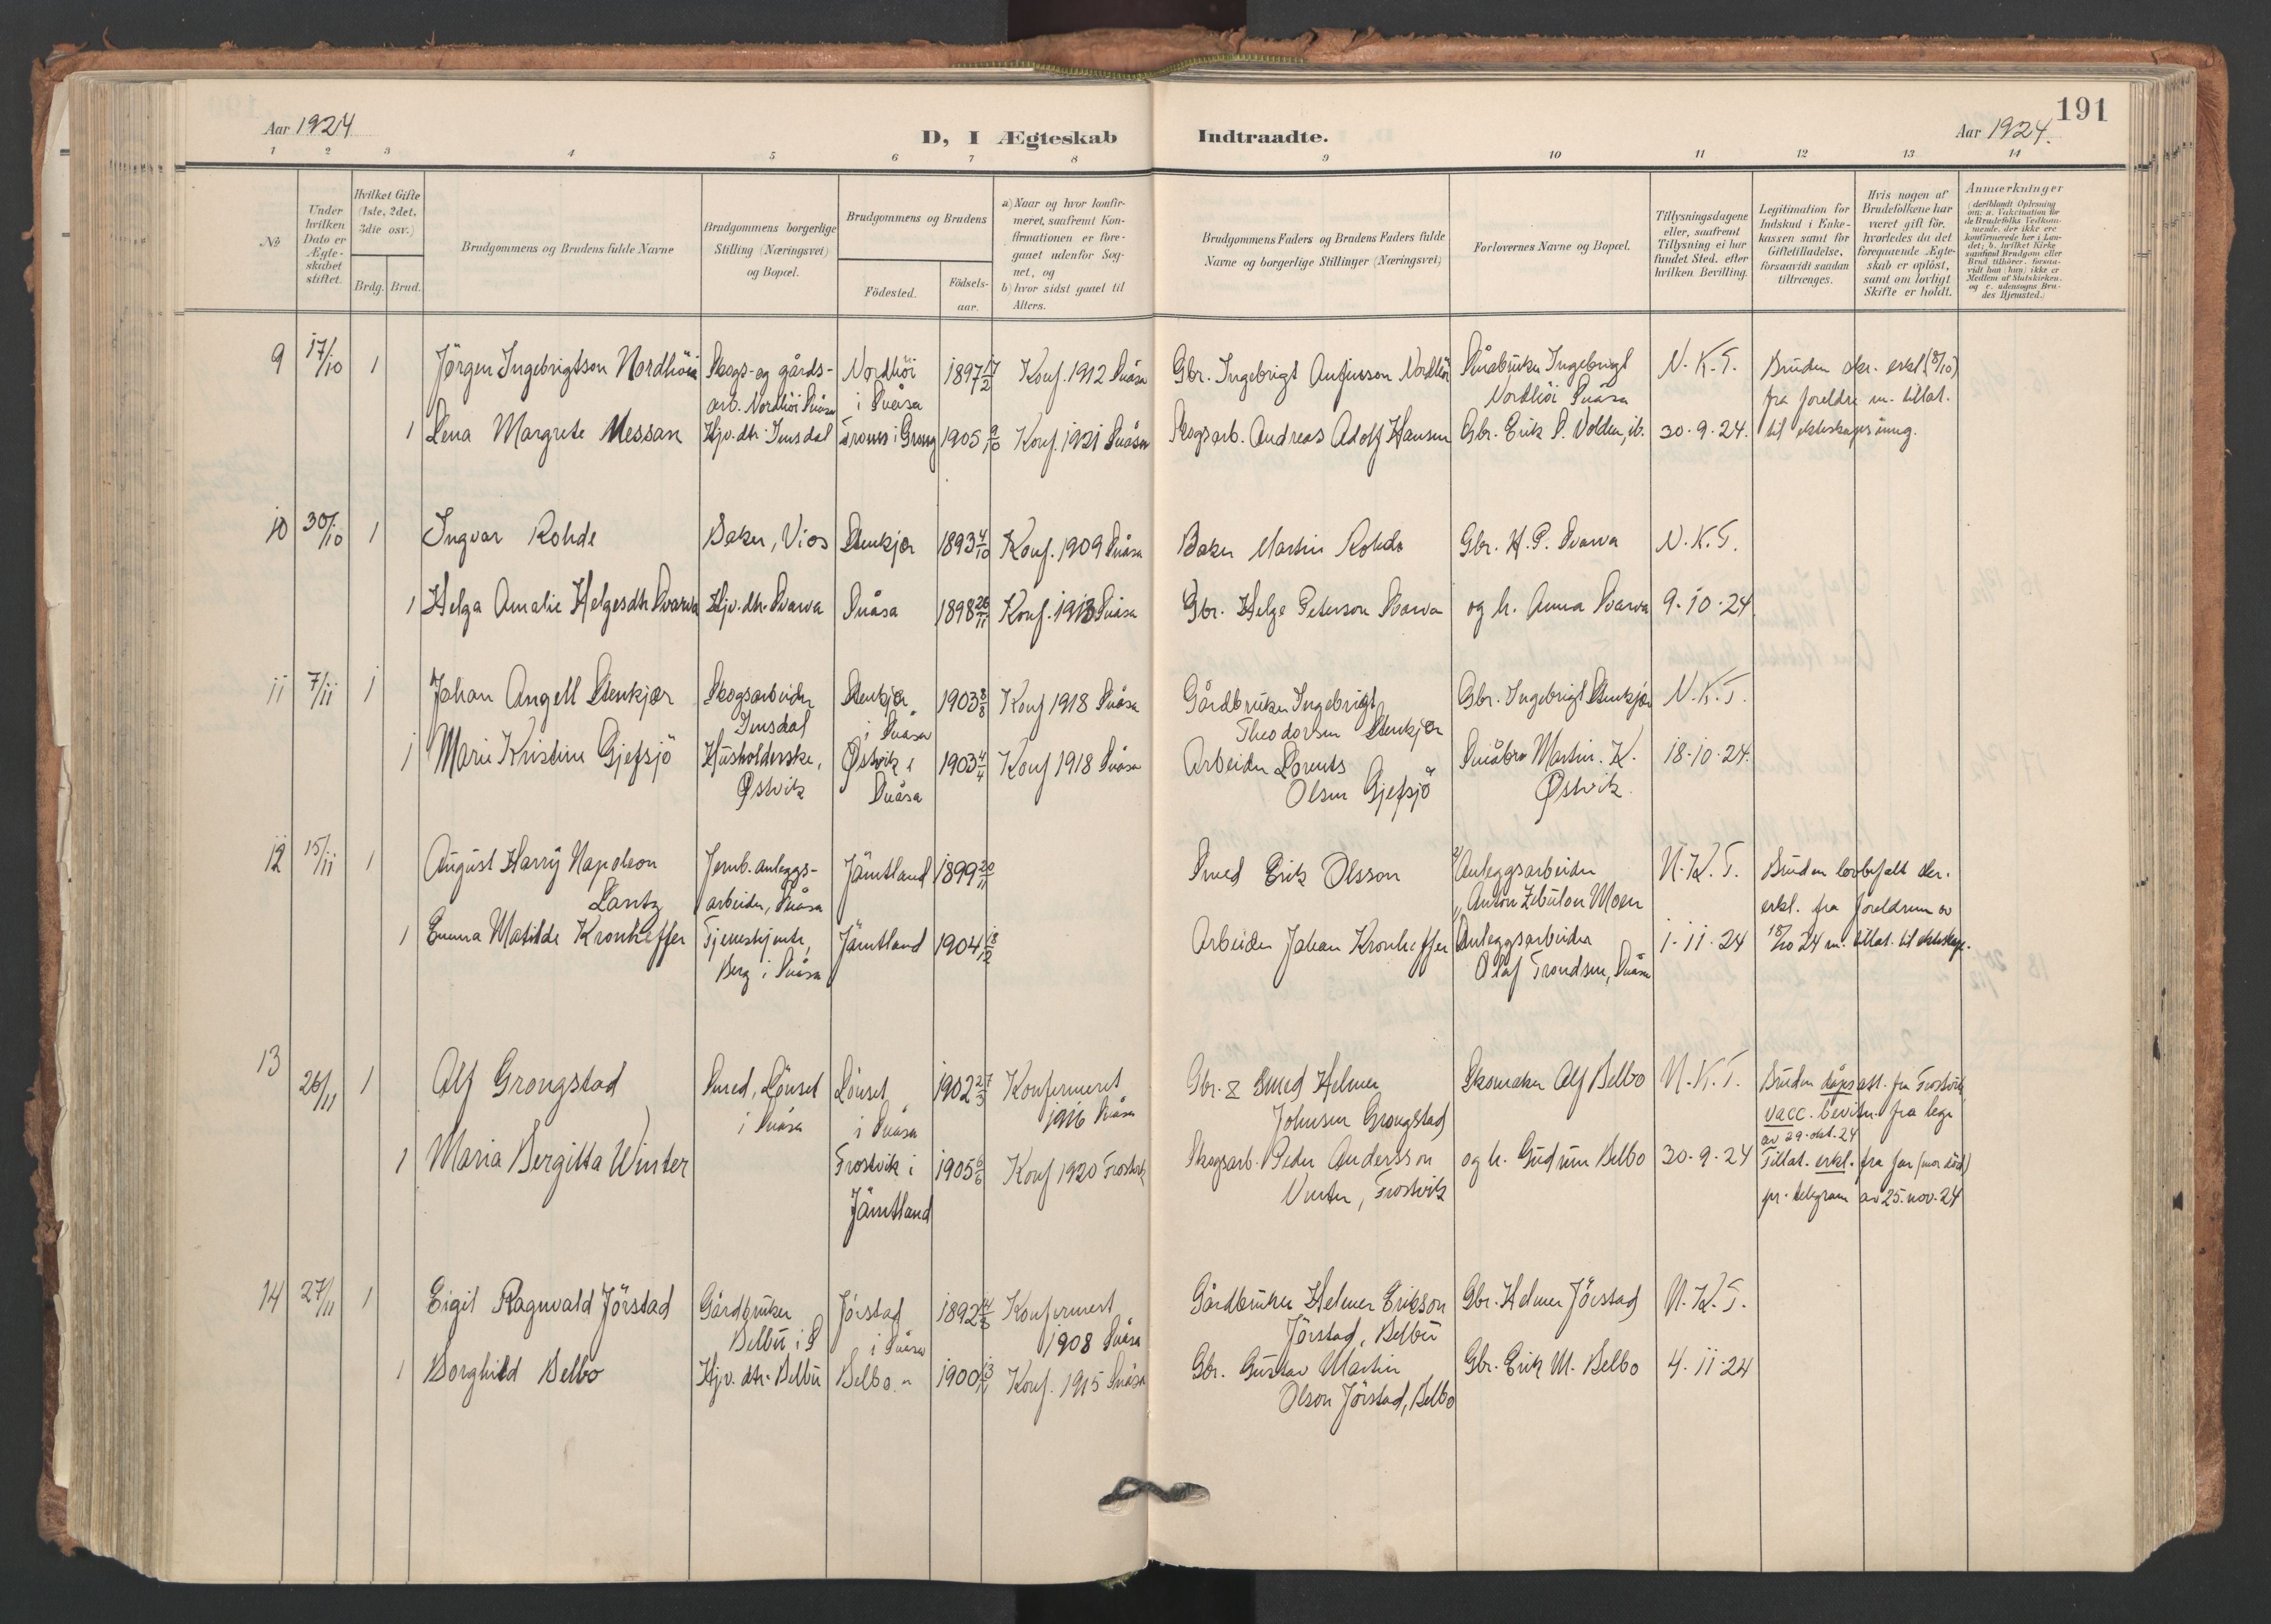 191
Aar 1924
D, I Ægteskab Indtraadte.
Aar 1924.
1 2 3 4 5 6 7 8 9 10 11 12 13 14
No
Under hvilken Dato er Ægteskabet stiftet.
Hvilket Gifte (1ste, 2det, 3die osv.)
Brdg. Brud.
Brudgommens og Brudens fulde Navne
Brudgommens borgerlige Stilling (Næringsvei) og Bopæl.
Brudgommens og Brudens
Fødested.
Fødselsaar.
a) Naar og hvor konfirmeret, saafremt Konfirmationen er foregaaet udenfor Sognet, og
b) hvor sidst gaaet til Alters.
Brudgommens Faders og Brudens Faders fulde Navne og borgerlige Stillinger (Næringsvei)
Forlovernes Navne og Bopæl.
Tillysningsdagene eller, saafremt Tillysning ei har fundet Sted, efter hvilken Bevilling.
Legitimation for Indskud i Enkekassen samt for Giftetilladelse, forsaavidt saadan tiltrænges.
Hvis nogen af Brudefolkene har været gift før, hvorledes da det foregaaende Ægteskab er opløst, samt om lovligt Skifte er holdt.
Anmærkninger (deriblandt Oplysning om: a. Vakcination for de Brudefolks Vedkommende, der ikke ere konfirmerede her i Landet; b. hvilket Kirkesamfund Brudgom eller Brud tilhører, forsaavidt han (hun) ikke er Medlem af Statskirken, og c. udensogns Brudes Hjemsted.)
9 17/10 1 Jörgen Ingebrigtson Nordhöi Skogs- og gårds- Nordhöi 1897 17/2 Konf. 1912 Snåsa Gbr. Ingebrigt Anfinsson Nordhöi Småbruker Ingebrigt N.K.T. Bruden skr. erkl. (8/10)
arb. Nordhöi Snåsa i Snåsa Nordhöi Snåsa fra foreldre m. tillat.
1 Lena Margrete Messan Hjv. dtr. Imsdal Trones i Grong 1905 9/10 Konf. 1921 Snåsa Skogsarb. Andreas Adolf Hansen Gbr. Erik P. Volden, ib. 30.9.24. til ekteskapsinng.
10 30/10 1 Ingvar Rohde Baker, Vios Stenkjær 1893 4/10 Konf. 1909 Snåsa Baker Martin Rohde Gbr. H.P. Svarva N.K.T.
1 Helga Amalie Helgesdtr Svarva Hjv. dtr. Svarva Snåsa 1898 26/11 Konf. 1913 Snåsa Gbr. Helge Peterson Svarva og h. Anna Svarva 9.10.24
11 7/11 1 Johan Angell Stenkjær Skogsarbeider Stenkjær 1903 8/8 Konf 1918 Snåsa Gårdbruker Ingebrigt Gbr. Ingebrigt Stenkjær N.K.T.
Imsdal i Snåsa Theodorsen Stenkjær
1 Marie Kristine Gjefsjö Husholderske, Østvik i 1903 4/4 Konf 1918 Snåsa Arbeider Lorents Småbr. Martin. K. 18.10.24.
Østvik Snåsa Olsen Gjefsjö Østvik.
12 15/11 1 August Harry Napoleon Jernb. anleggs- Jämtland 1899 20/11 Smed Erik Olsson Anleggsarbeider N.K.T. Bruden lovbefalt skr.
Lantz arbeider, Snåsa Anton Zebulon Moen erkl. fra foreldrene av
1 Emma Matilde Kronheffer Tjenestjente, Jämtland 1904 18/12 Arbeider Johan Kronheffer Anleggsarbeider 1.11.24 18/10 24 m. tillat. til ekteskap.
Berg i Snåsa Olaf Trondsen, Snåsa
13 26/11 1 Alf Grongstad Smed, Lönset Lönset 1902 27/3 Konfirmeret Gbr. & Smed Helmer Skomaker Alf Belbo N.K.T. Bruden dåpsatt. fra Frostvik
i Snåsa i Snåsa 1916 Snåsa Johnsen Grongstad vacc. bevitn. fra lege
av 29. okt. 24
1 Maria Bergitta Winter Frostvik i 1905 6/6 Konf 1920 Frostvik Skogsarb. Peder Andersson og h. Gudrun Belbo 30.9.24 Tillat. erkl. fra far (mor död)
Jämtland Vinter, Frostvik pr. telegram av 25. nov. 24
14 27/11 1 Eigil Ragnvald Jörstad Gårdbruker Jörstad 1892 Konfirmert Gårdbruker Helmer Erikson Gbr. Helmer Jörstad N.K.T.
Belbu i S i Snåsa 1908 Snåsa Jörstad, Belbu
1 Borghild Belbo Hjv. dtr. Belbu Belbo " 1900 Konf. 1915 Snåsa Gbr. Gustav Martin Gbr. Erik M. Belbo 4.11.24
Olson Jörstad, Belbo